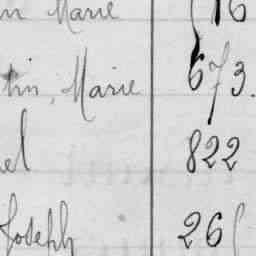 Marie 16
tin, Marie 673.
el 822
Joseph 26